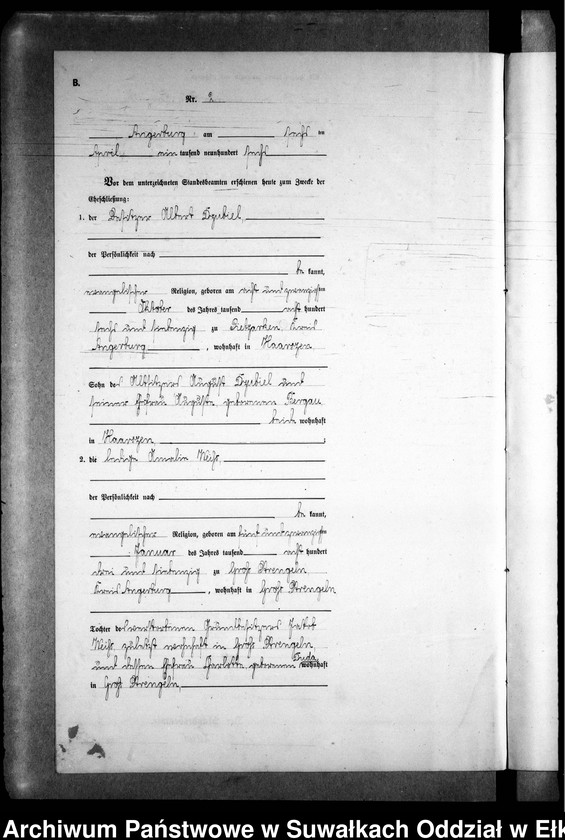 B.
Nr. 2
Angerburg am sechs ten
April ein tausend neunhundert sechs
Vor dem unterzeichneten Standesbeamten erschienen heute zum Zwecke der
Eheschließung:
1. der Besitzer Albert
der Persönlichkeit nach
be kannt,
evangelischer Religion, geboren am acht und zwanzigsten
Oktober des Jahres tausend acht hundert
sechs und siebenzig zu Kreis
Angerburg, wohnhaft in Haarszen
Sohn des Altsitzers August und
seiner Ehefrau Auguste geborenen
beide wohnhaft
in Haarszen
2. die ledige Amalie Weiß,
der Persönlichkeit nach
be kannt,
evangelischer Religion, geboren am fünf und zwanzigsten
Januar des Jahres tausend acht hundert
drei und siebenzig zu Groß Strengeln,
Kreis Angerburg, wohnhaft in Groß Strengeln
Tochter des verstorbenen Grundbesitzers Jakob
Weiß, zuletzt wohnhaft in Groß Strengeln,
und dessen Ehefrau Charlotte, geborenen
wohnhaft
in Groß Strengeln
Archiwum Państwowe w Suwałkach Oddział w Ełk